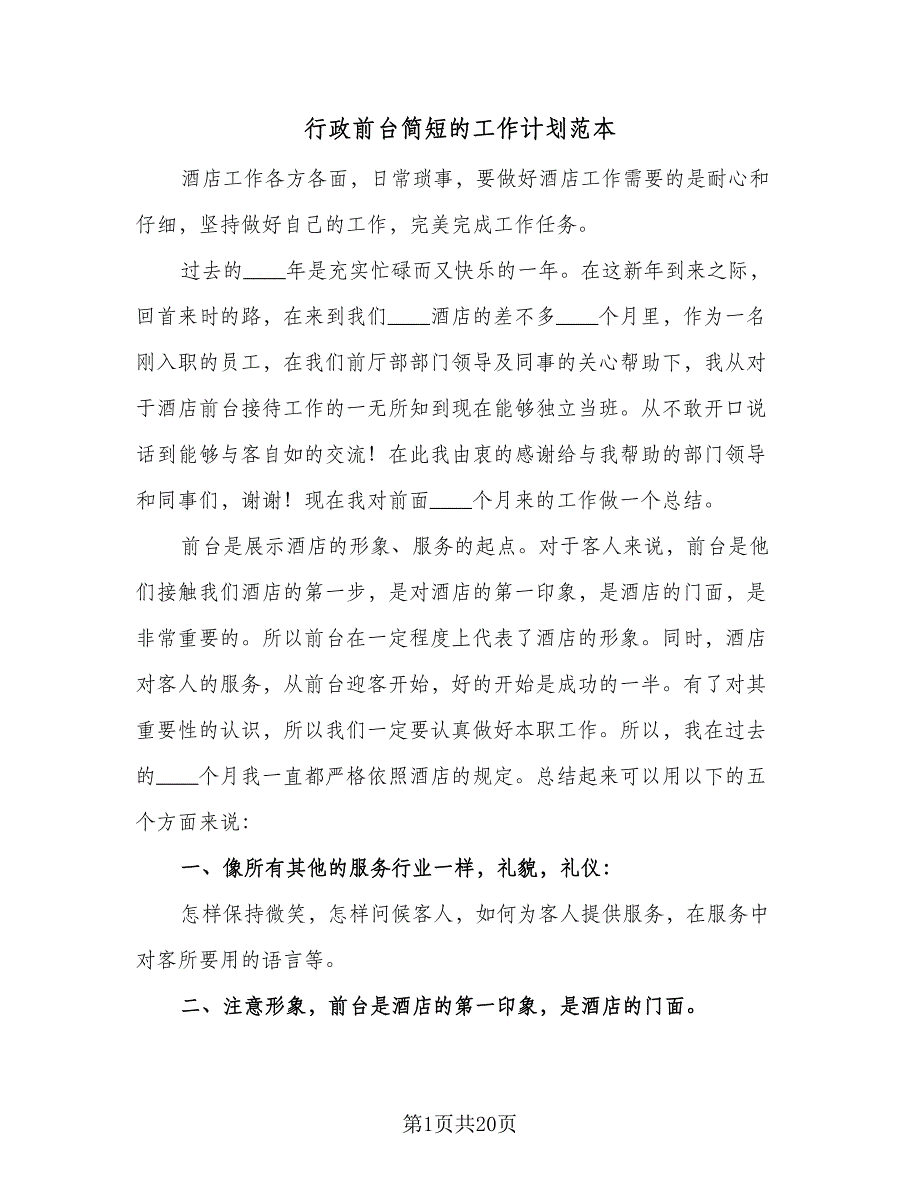 行政前台简短的工作计划范本
酒店工作各方各面，日常琐事，要做好酒店工作需要的是耐心和
仔细，坚持做好自己的工作，完美完成工作任务。
过去的____年是充实忙碌而又快乐的一年。在这新年到来之际，
回首来时的路，在来到我们____酒店的差不多____个月里，作为一名
刚入职的员工，在我们前厅部部门领导及同事的关心帮助下，我从对
于酒店前台接待工作的一无所知到现在能够独立当班。从不敢开口说
话到能够与客自如的交流！在此我由衷的感谢给与我帮助的部门领导
和同事们，谢谢！现在我对前面____个月来的工作做一个总结。
前台是展示酒店的形象、服务的起点。对于客人来说，前台是他
们接触我们酒店的第一步，是对酒店的第一印象，是酒店的门面，是
非常重要的。所以前台在一定程度上代表了酒店的形象。同时，酒店
对客人的服务，从前台迎客开始，好的开始是成功的一半。有了对其
重要性的认识，所以我们一定要认真做好本职工作。所以，我在过去
的____个月我一直都严格依照酒店的规定。总结起来可以用以下的五
个方面来说：
一、像所有其他的服务行业一样，礼貌，礼仪：
怎样保持微笑，怎样问候客人，如何为客人提供服务，在服务中
对客所要用的语言等。
二、注意形象，前台是酒店的第一印象，是酒店的门面。
第1页共20页